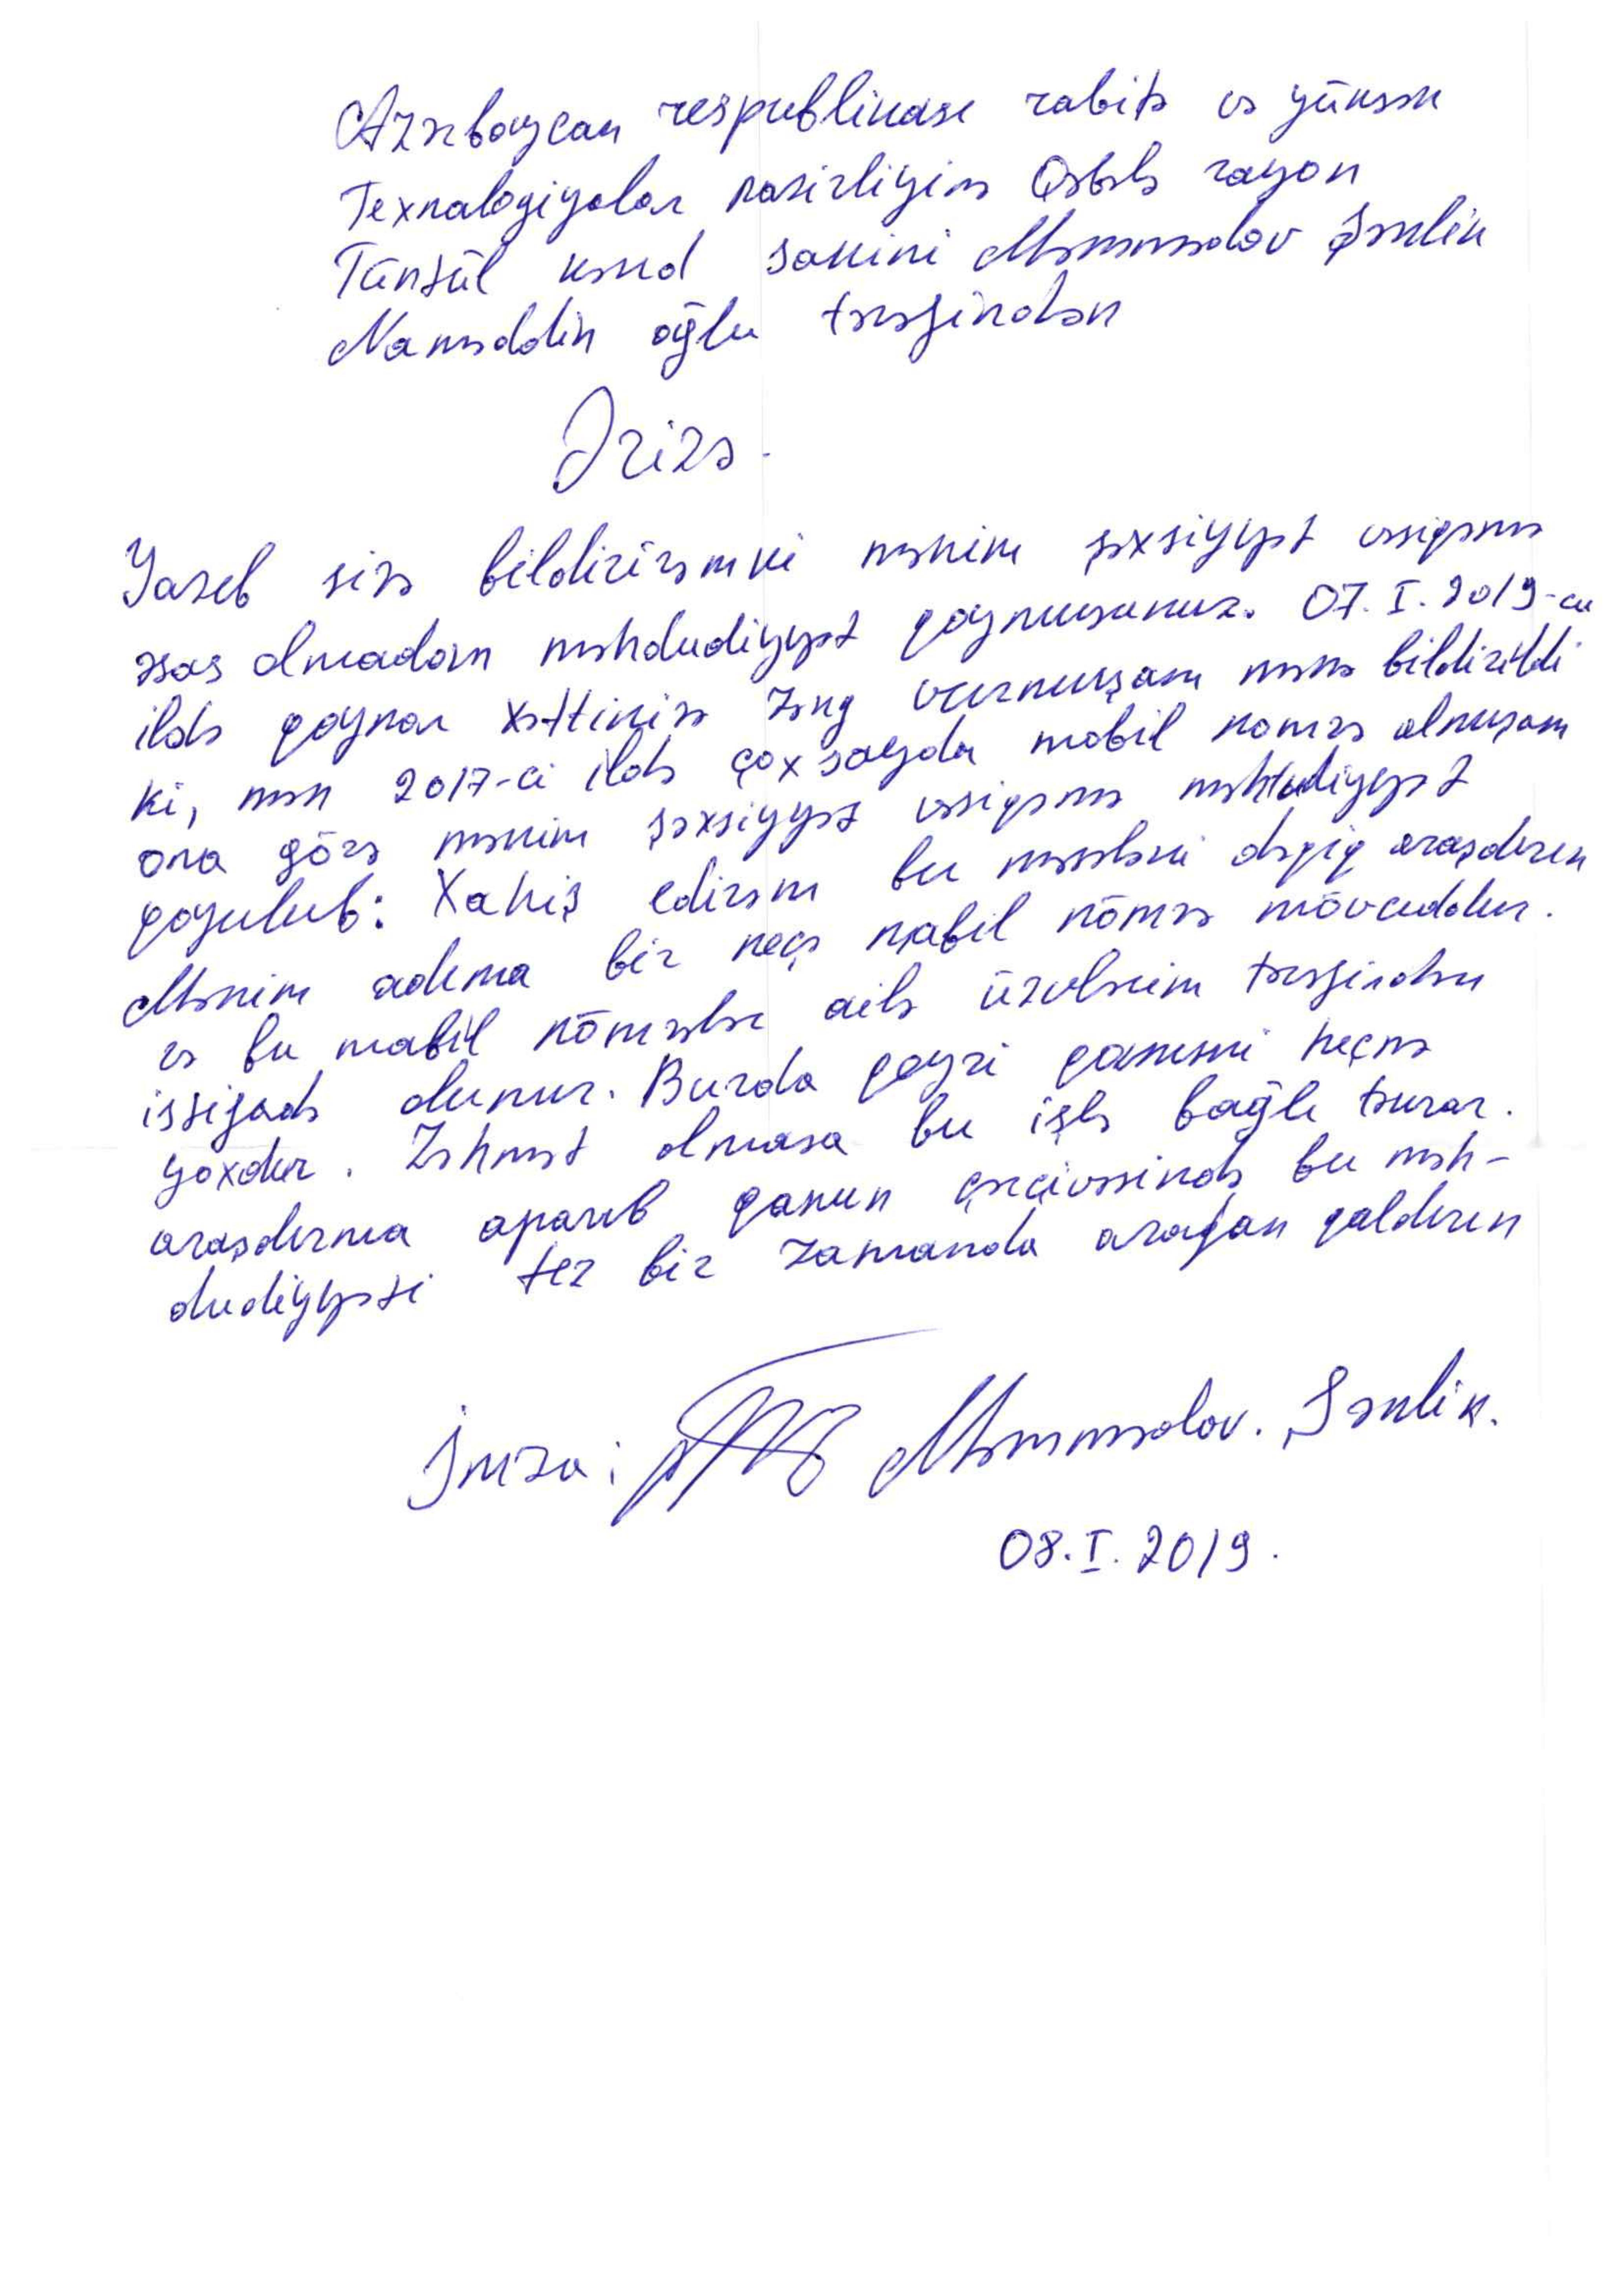 Azərbaycan respublikası rabitə və yüksək
Texnalogiyalar nazirliyinə Qəbələ rayon
Tüntül kənd sakini Məmmədov Şənlik
Naməddin oğlu tərəfindən
Ərizə.
Yazıb sizə bildirirəmki mənim şəxsiyyət vəsiqəmə
əsas olmadan məhdudiyyət qoymusunuz. 07.I.2019-cu
ildə qaynar xəttinizə zəng vurmuşam mənə bildirildi
ki, mən 2017-ci ildə çox sayda mobil nomrə almışam
ona görə mənim şəxsiyyət vəsiqəmə məhtudiyyət
qoyulub: Xahiş edirəm bu məsələni dəqiq araşdırın
Mənim adıma bir neçə mabil nömrə mövcuddur.
və bu mabil nömrələr ailə üzvlərim tərəfindən
istifadə olunur. Burda qeyri qanuni heçnə
yoxdur. Zəhmət olmasa bu işlə bağlı təkrar.
araşdırma aparıb qanun çərçivəsində bu məh-
dudiyyəti tez bir zamanda aradan qaldırın
İmza: Məmmədov. Şənlik.
08.I.2019.